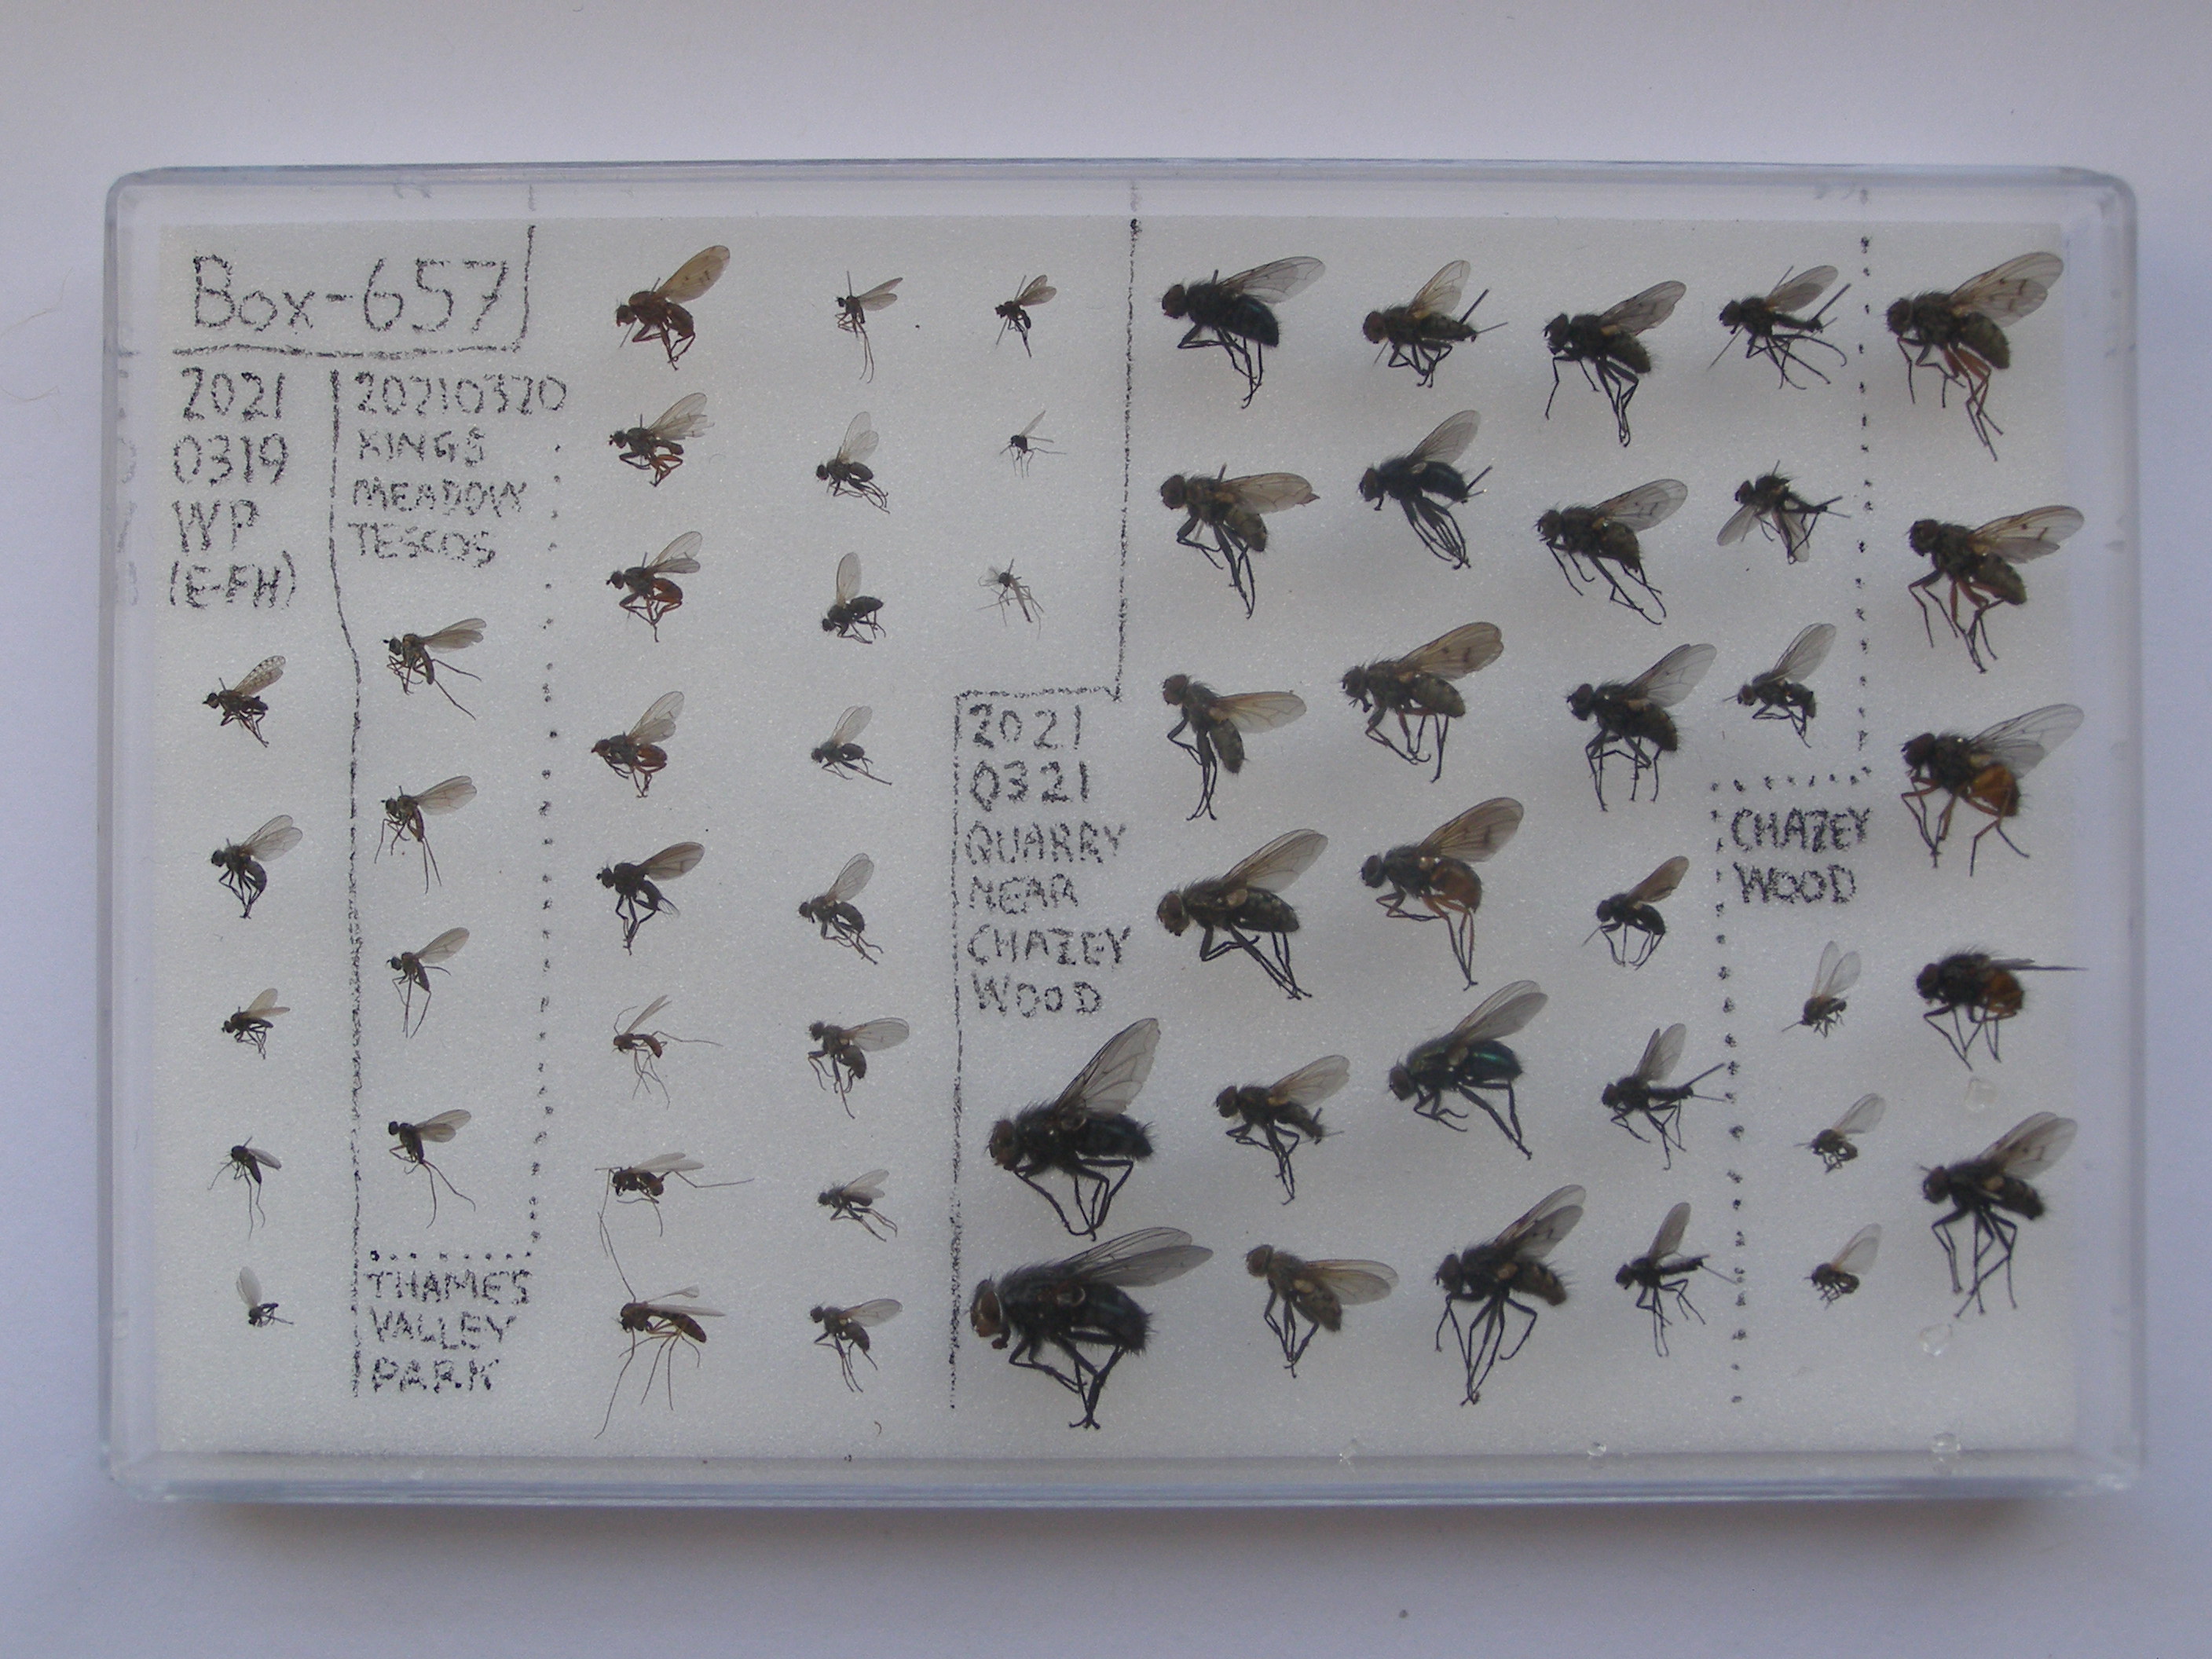 Box-657
2021
0319
WP
(E-FH)
20210320
KINGS
MEADOW
TESCOS
THAMES
VALLEY
PARK
2021
0321
QUARRY
NEAR
CHAZEY
WOOD
CHAZEY
WOOD